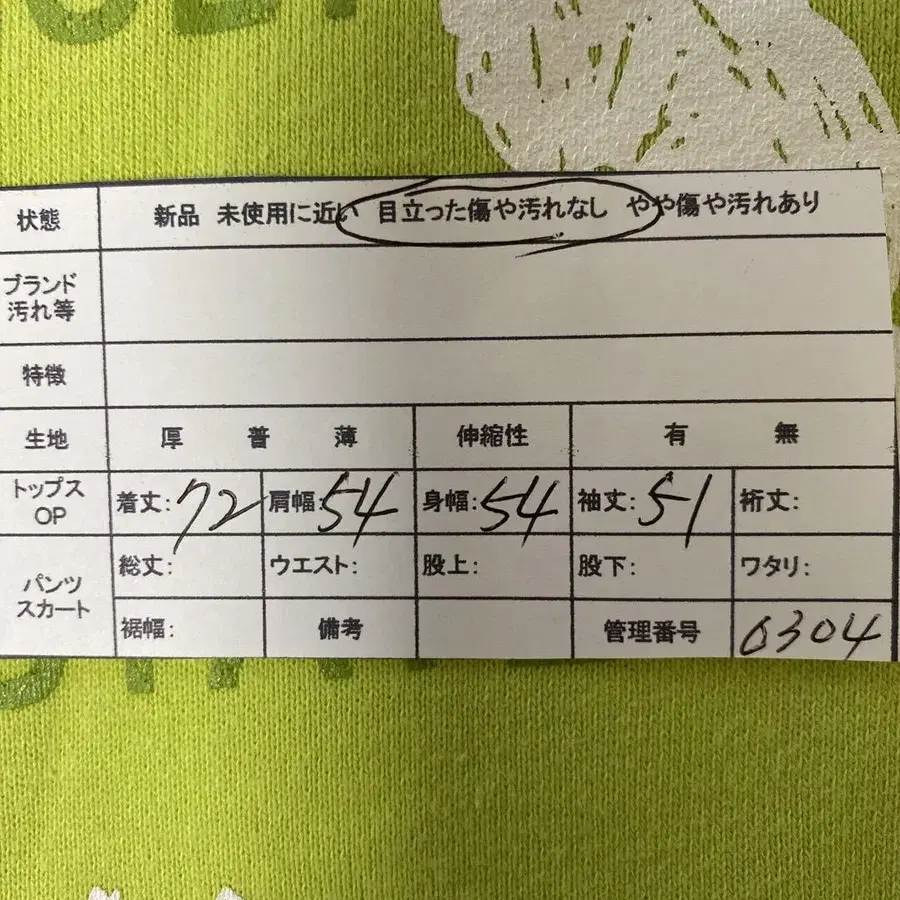 状態 新品 未使用に近い 目立った傷や汚れなし やや傷や汚れあり
ブランド
汚れ等
特徴
生地 厚 普 薄 伸縮性 有 無
トップス
OP
着丈:72 肩幅:54 身幅:54 袖丈:51 裄丈:
パンツ
スカート
総丈: ウエスト: 股上: 股下: ワタリ:
裾幅: 備考 管理番号 0304